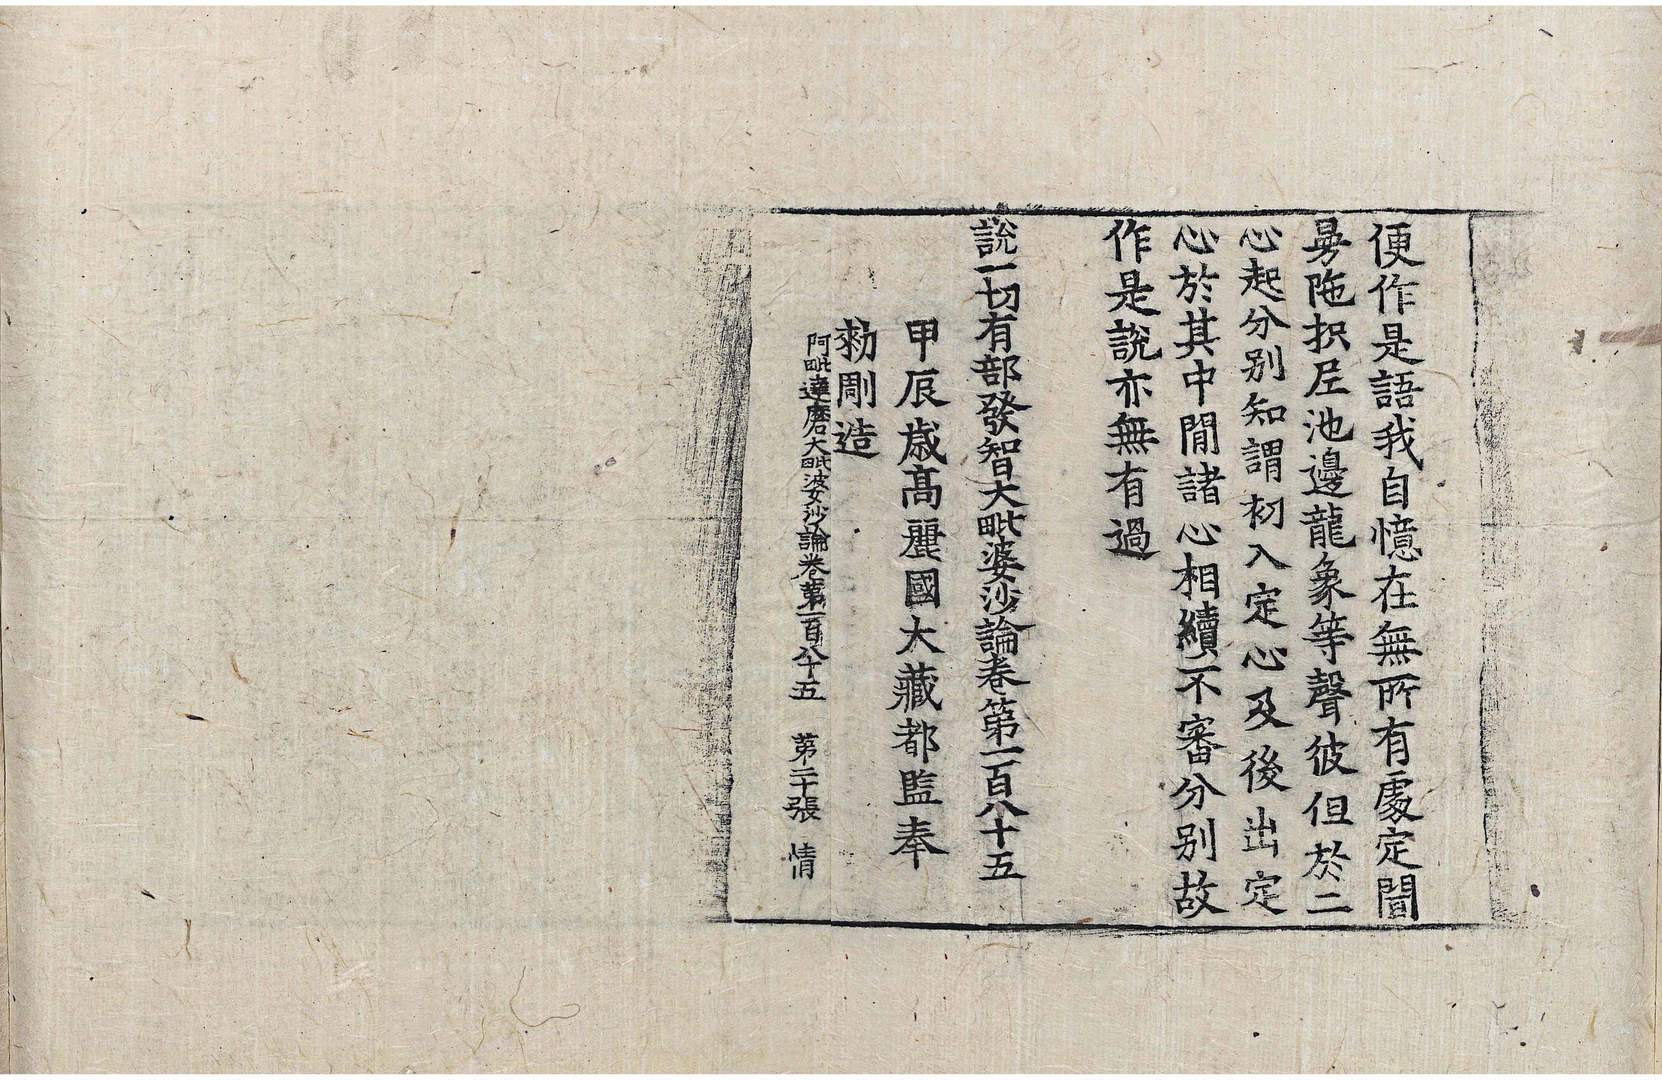 便作是語我自憶在無所有處定聞
曼陁抧尼池邊龍象等聲彼但於二
心起分別知謂初入定心及後出定
心於其中閒諸心相續不審分別故
作是說亦無有過
說一切有部發智大毗婆沙論卷第一百八十五
甲辰歲高麗國大藏都監奉
勑彫造
阿毗達磨大毗婆沙論卷第一百八十五 第二十張 情